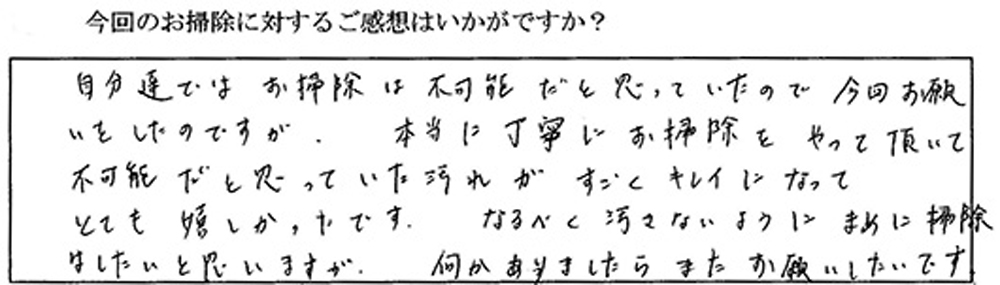 今回のお掃除に対するご感想はいかがですか？
自分達では お掃除は不可能だと思っていたので 今回お願
いをしたのですが、 本当に丁寧にお掃除を やって頂いて
不可能だと思っていた汚れが すごくキレイになって
とても 嬉しかったです. なるべく汚さないように まめに掃除
はしたいと思いますが、 何かありましたら またお願いしたいです.